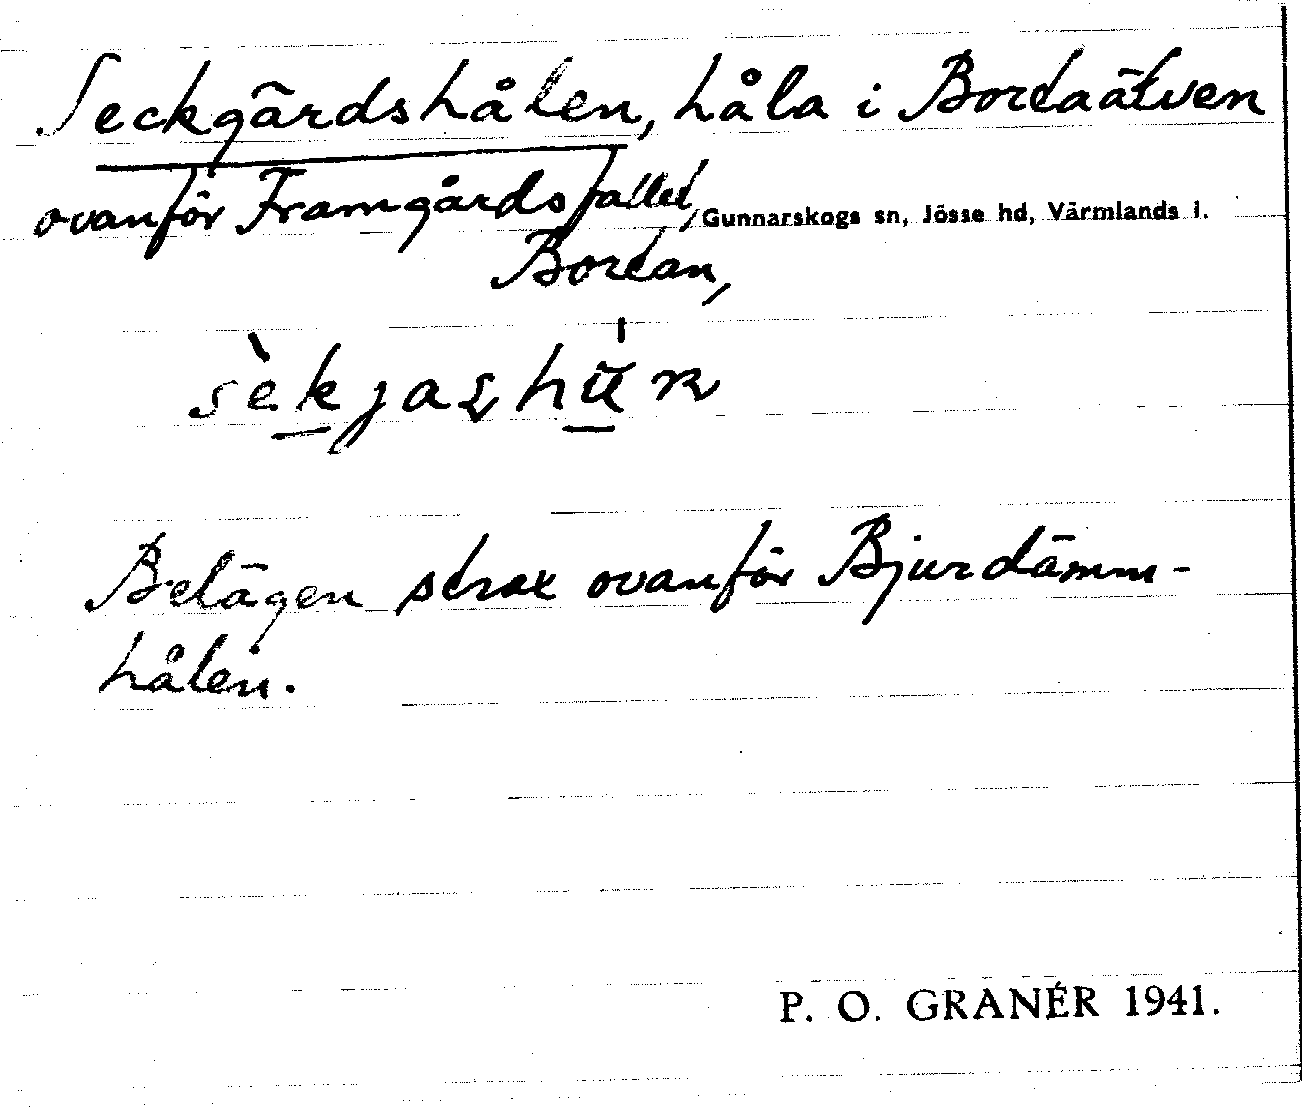 Seckgärdshålen, håla i Bortaälven
ovanför Framgårdsfallet, Gunnarskogs sn, Jösse hd, Värmlands l.
Bortan,
Belägen strax ovanför Bjurdämm-
hålen.
P. O. GRANÉR 1941.